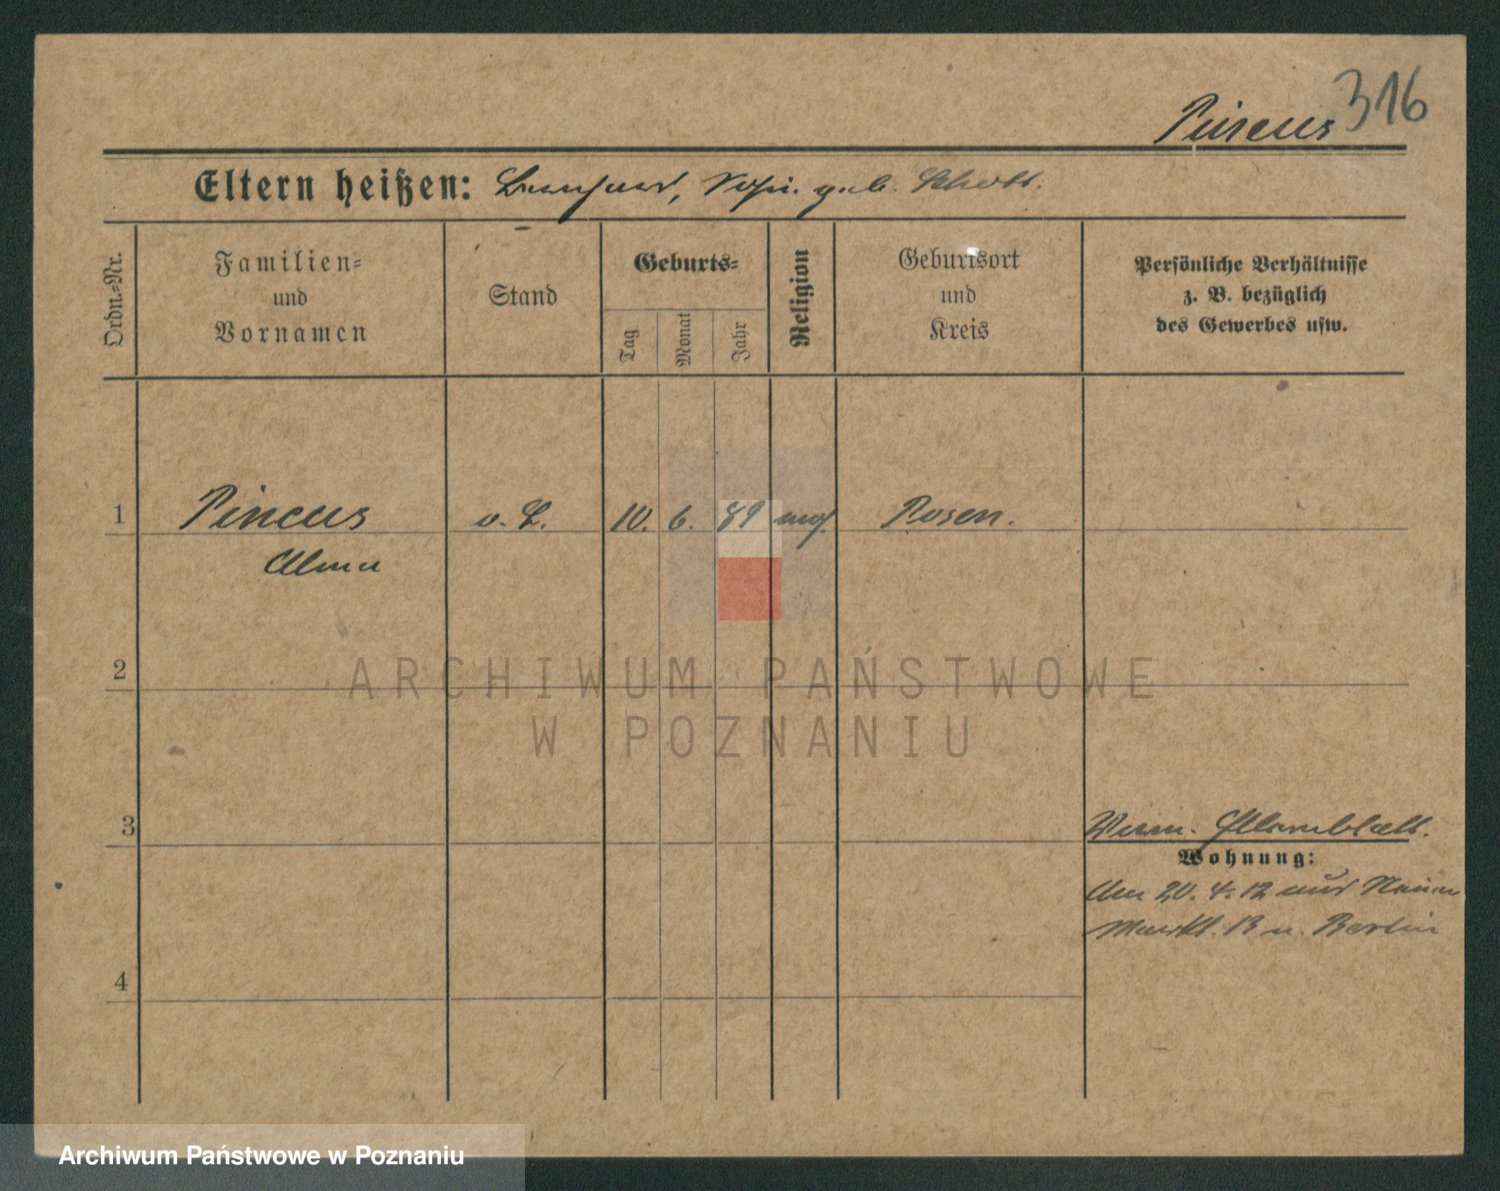 316
Pincus
Eltern heißen: Bernhard, geb. Schott.
Ordn.=Nr.
Familien=
und
Vornamen
Stand
Geburts=
Tag
Monat
Jahr
Religion
Geburtsort
und
Kreis
Persönliche Verhältnisse
z. B. bezüglich
des Gewerbes usw.
1 Pincus o. 10. 6. 89 Posen.
Alma
2
ARCHIWUM PAŃSTWOWE
W POZNANIU
3
Elternblatt.
Wohnung:
Am 20. 4. 12 auf
Markt. 13 n. Berlin
4
Archiwum Państwowe w Poznaniu